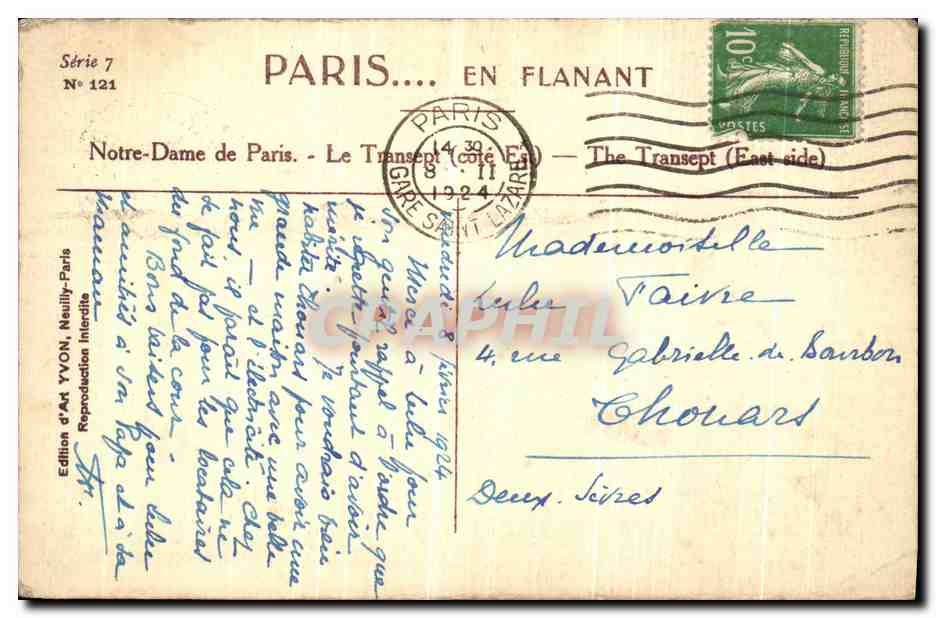 Série 7
N° 121
PARIS.... EN FLANANT
Notre-Dame de Paris. - Le Transept (côté Est) — The Transept (East side)
PARIS
14 30
8 · II
1924
GARE SAINT LAZARE
10c
REPUBLIQUE FRANCAISE
POSTES
8 février 1924
Merci à Lulu pour
son gentil rappel à l'ordre que
je regrette pourtant d'avoir
mérité. Je voudrais bien
habiter Thouars pour avoir une
grande maison avec une belle
vue — et l'électricité. Chez
nous, il paraît que cela ne
se fait pas pour les locataires
du fond de la cour.
Bons baisers pour Lulu
et amitiés à son Papa et à sa
Maman.
Mademoiselle
Lulu Faivre
4, rue Gabrielle de Bourbon
Thouars
Deux-Sèvres
Edition d'Art YVON, Neuilly-Paris
Reproduction Interdite
CRAPHIL